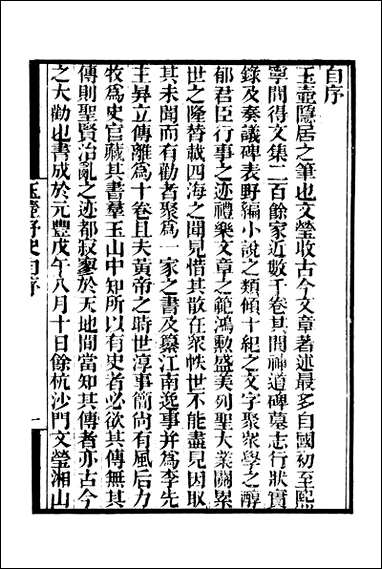 自序
玉壺隱居之筆也文瑩收古今文章著述最多自國初至熙
寧間得文集二百餘家近數千卷其間神道碑墓志行狀實
錄及奏議碑表野編小說之類傾十紀之文字聚衆學之醇
郁君臣行事之迹禮樂文章之範鴻勲盛美列聖大業關累
世之隆替載四海之聞見惜其散在衆帙世不能盡見因取
其未聞而有勸者聚爲一家之書及纂江南逸事并爲李先
主昇立傳離爲十卷且夫黃帝之時世淳事簡尙有風后力
牧爲史官藏其書羣玉山中知所以有史者必欲其傳無其
傳則聖賢治亂之迹都寂寥於天地間當知其傳者亦古今
之大勸也書成於元豐戊午八月十日餘杭沙門文瑩湘山
玉壺野史自序
一